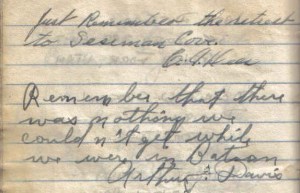 Just Remember the retreat
to Seseman Cove.
Remember that there
was nothing we
could n't get while
we were in Bataan
Arthur Davis